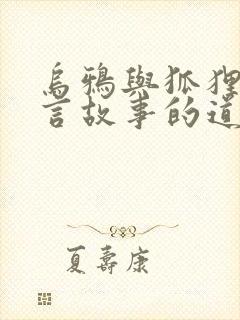 烏鴉與狐狸
言故事的道
夏壽康